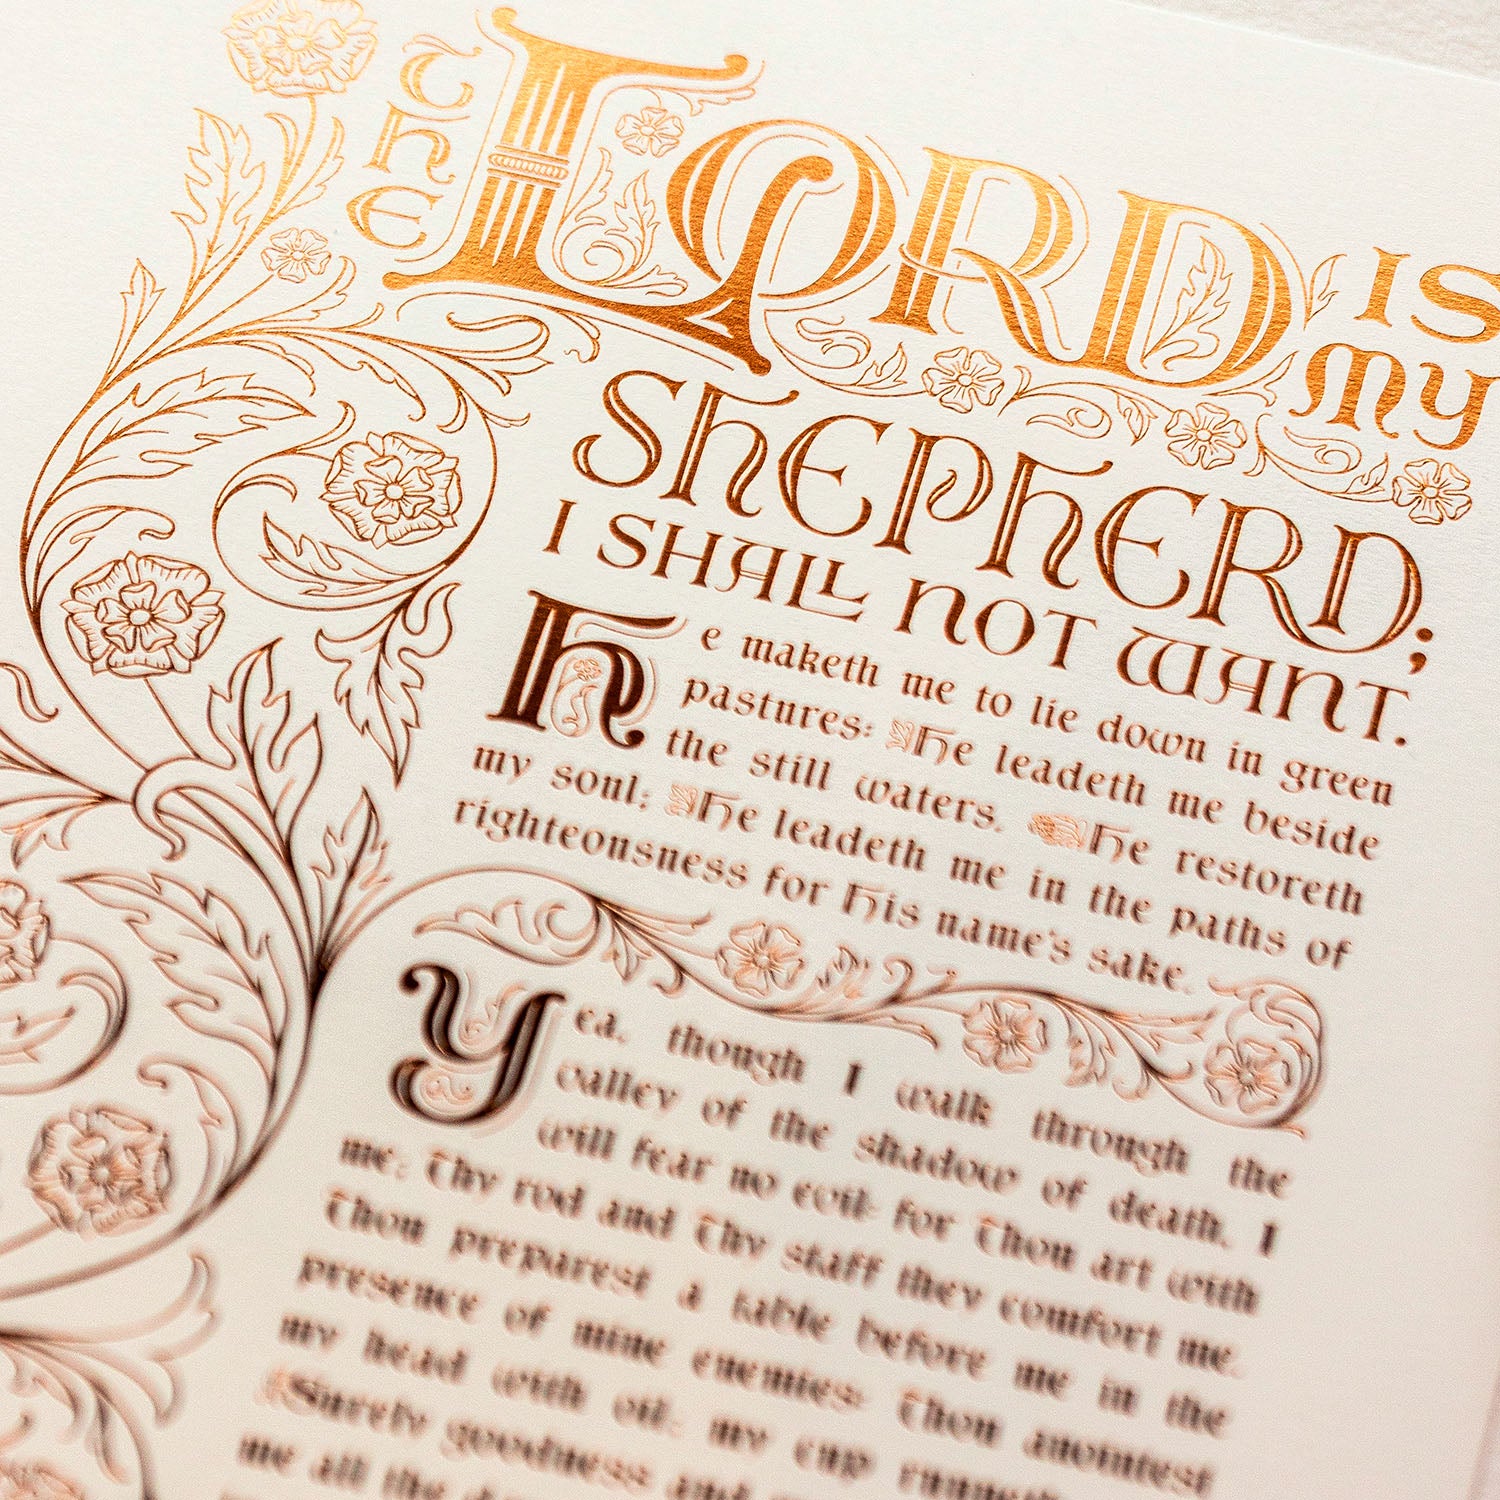 THE LORD IS MY
SHEPHERD;
I SHALL NOT WANT.
He maketh me to lie down in green
pastures: He leadeth me beside
the still waters. He restoreth
my soul: He leadeth me in the paths of
righteousness for His name's sake.
Yea, though I walk through the
valley of the shadow of death, I
will fear no evil: for Thou art with
me; Thy rod and Thy staff they comfort me.
Thou preparest a table before me in the
presence of mine enemies: Thou anointest
my head with oil; my cup
Surely goodness and
me all the